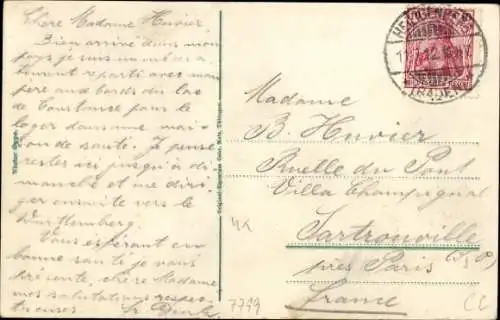 Chere Madame Huvier.
Bien arrivé dans mon
pays je suis
reparti avec mon
père aux bords du lac
de Constance pour le
loger dans une mai-
son de santé. Je pense
rester ici jusqu'à di-
manche et me diri-
ger ensuite vers le
Württemberg.
Vous espérant en
bonne santé je vous
présente, chère Madame
mes salutations respec-
tueuses.
Madame
B. Huvier
Ruelle du Pont
Villa Champignol
Sartrouville
près Paris (S. O.)
France
7749